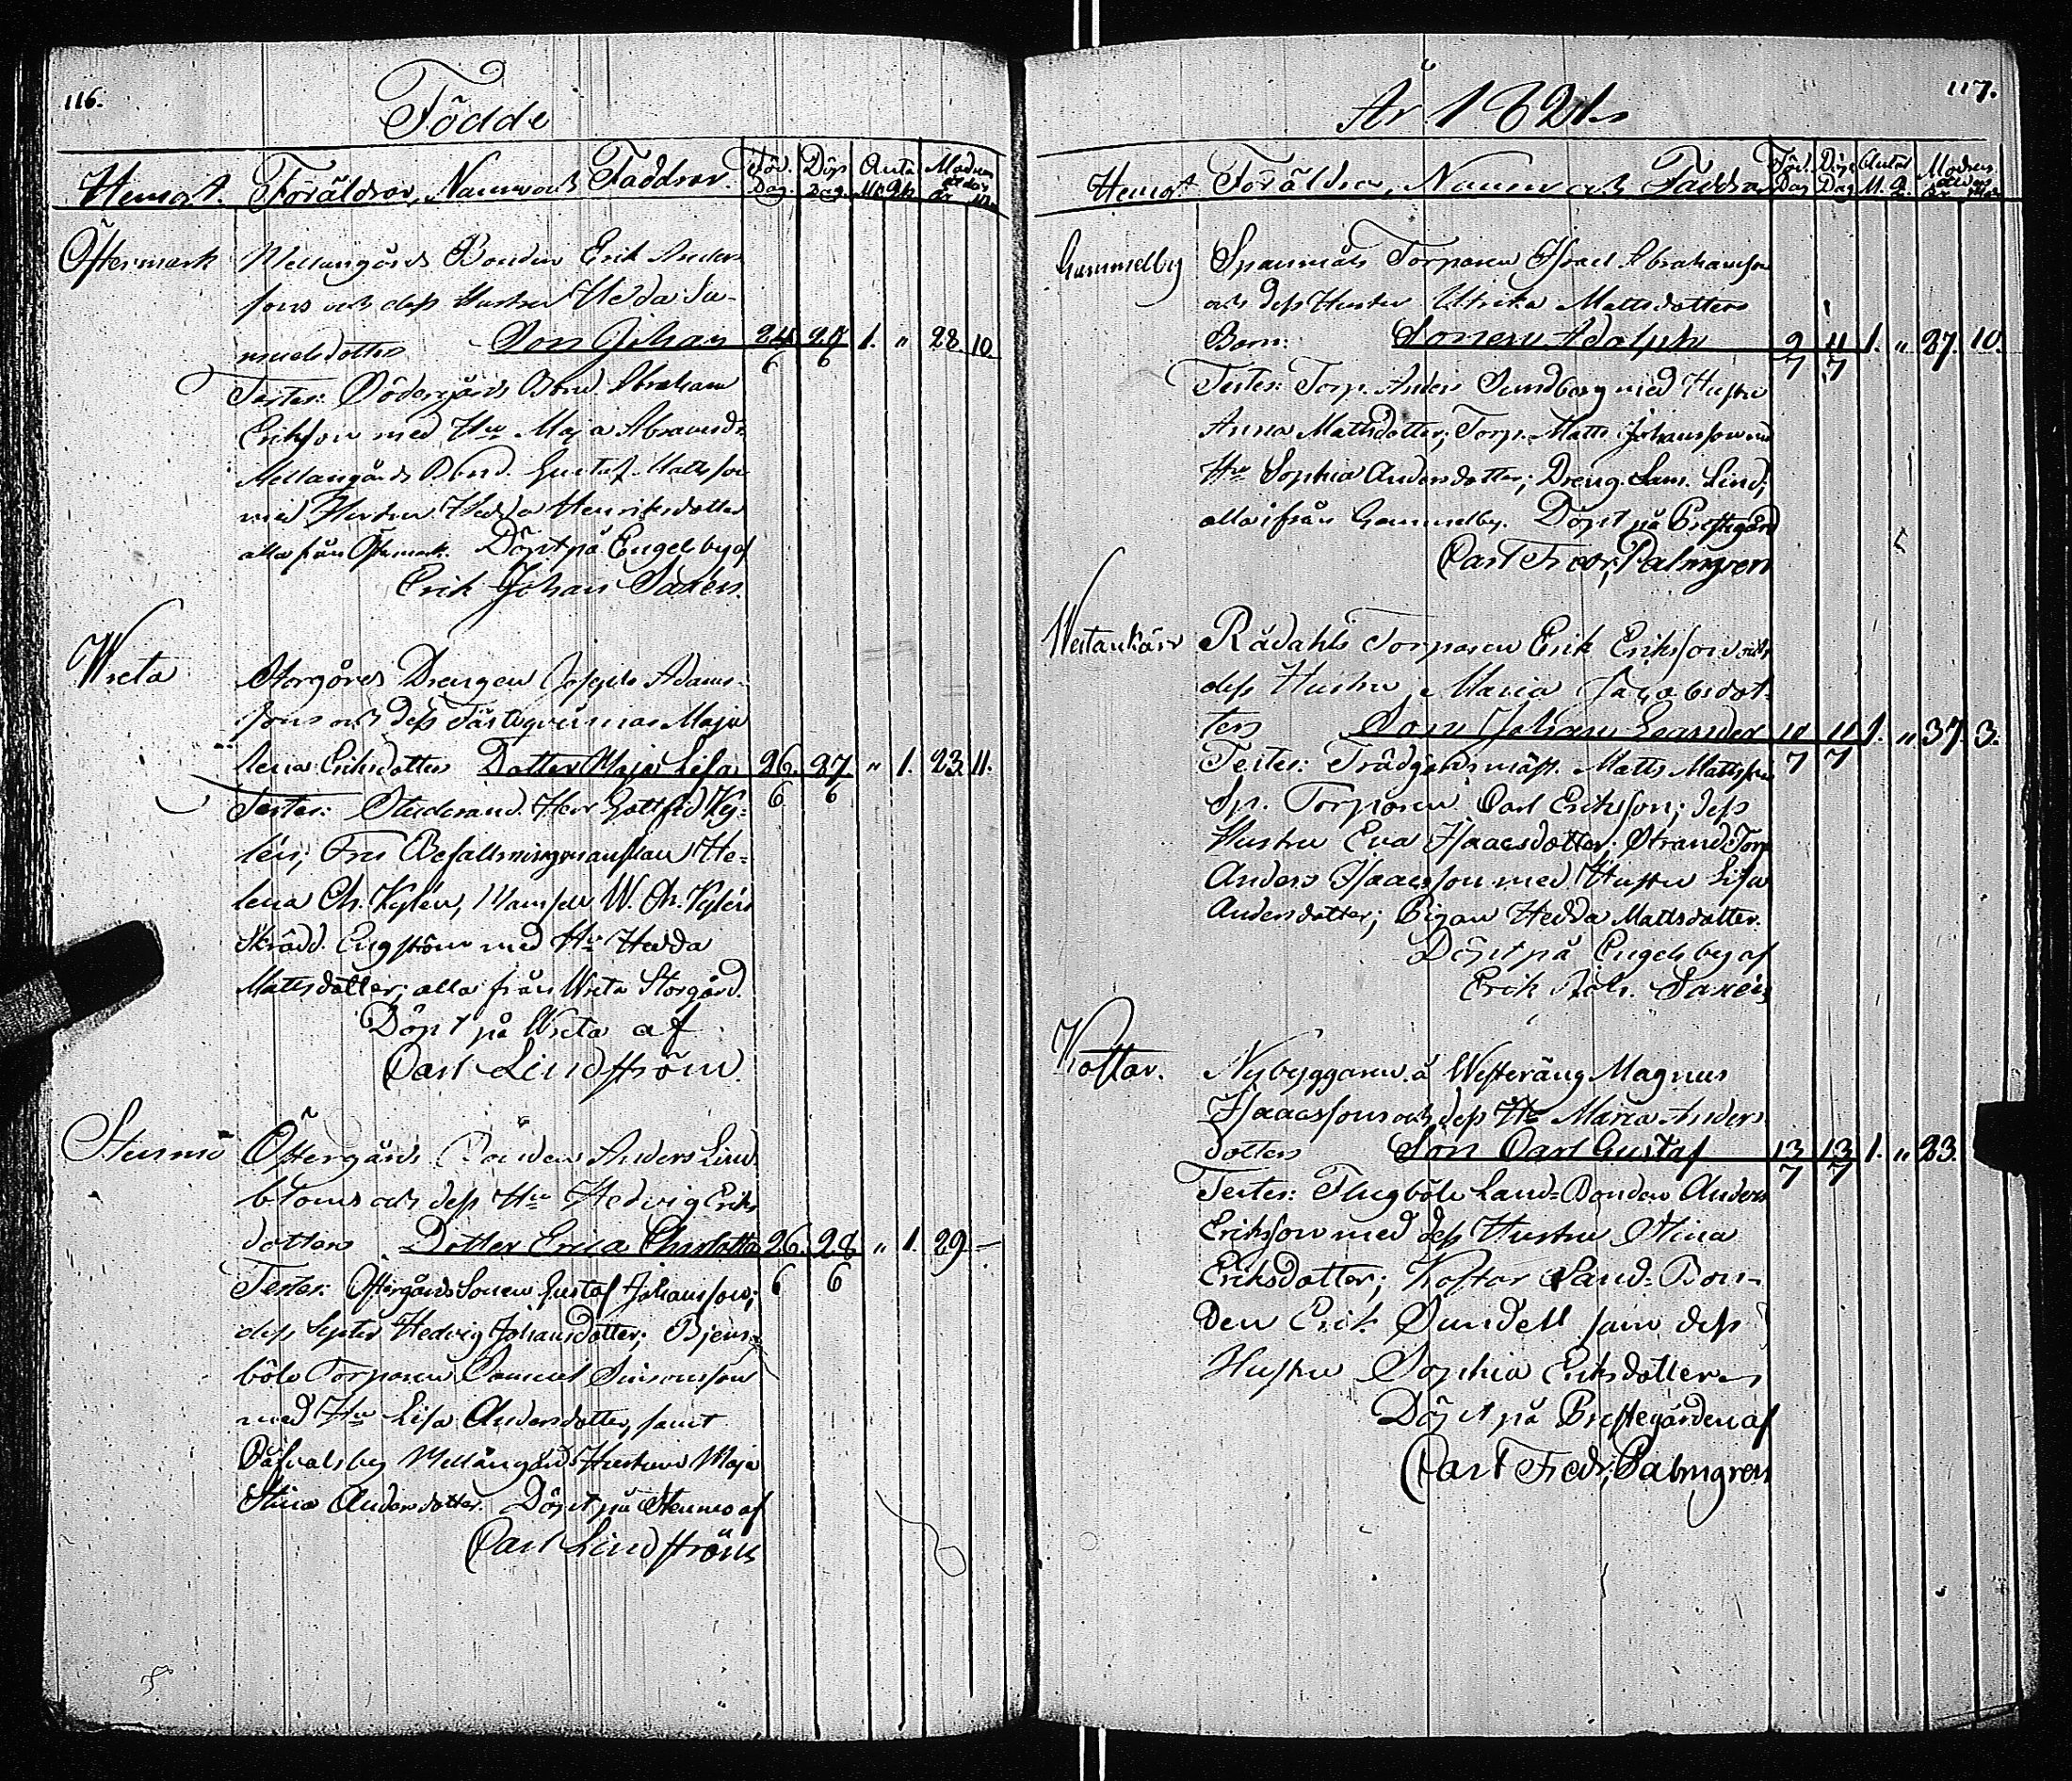 116.
Födde
Hemort. Föräldrar, Namn och Faddrar. Föd. Dag. Döp. Dag. Antal M.Q.k. Modrens ålder år m.
Östermark Mellangårds Bonden Erik Anders
sons och dess Hustru Hedda Sa-
muelsdotters Son Johan 24/6 28/6 1. " 28 10.
Testes: Södergårds Bond. Abraham
Erikson med Hu Maja Abramsdr.
Mellangårds Bond. Gustaf Mattsson
med Hustru Hedda Henriksdotter
alla från Östermark. Döpt på Engelsby af
Erik Johan Saxén.
Wreta Storgårds Drengen Joseph Adams-
sons och dess Fästeqvinnas Maja
lena Eriksdotters Dotter Maja Lisa 26./6 27./6 " 1. 23. 11.
Testes: Studerand. Herr Gottfrid Ky-
lén; Fru Befallningsmanskan He-
lena Ch. Kylén, Mamsell W. Ch. Kylén
Skrädd. Engström med Hu Hedda
Mattsdotter; alla från Wreta Storgård.
Döpt på Wreta af
Carl Lindström.
Stensmo Östergårds Bonden Anders Lind
bloms och dess Hu Hedvig Eriks
dotters Dotter Erica Charlotta 26./6 28/6 " 1. 29. —
Testes: Östergårds Sonen Gustaf Johansson;
dess Syster Hedvig Johansdotter; Bjens-
böle Torparen Samuel Simonsson
med Hu Lisa Andersdotter, samt
Påfvalsby Mellangårds Hustrun Maja
Stina Andersdotter. Döpt på Stensmo af
Carl Lindström
117.
År 1821.
Hemort Föräldrar, Namn och Faddrar Föd. Dag Döpt Dag Antal M. Q. Modrens ålder år Mån.
Gammelby Spannmåls Torparen Israel Abrahamsson
och dess Hustru Ulrika Mattsdotters
Barn: Sonen Adolph 9/7 11/7 1. " 27. 10.
Testes: Torp. Anders Sundberg med Hustru
Anna Mattsdotter; Torp. Matts Johansson med
Hu Sophia Andersdotter; Dreng Sam. Lind;
alla ifrån Gammelby. Döpt på Prestegård
Carl Fredr. Palmgren
Westankärr Rådahls Torparen Erik Eriksson och
dess Hustru Maria Jacobsdot-
ters Son Johan Leander 10/7 11/7 1. " 37. 3.
Testes: Trädgårdsmäst. Matts Mattsson
Sp. Torparen Carl Eriksson; dess
Hustru Eva Isaacsdotter; Strand Torp
Anders Isaacsson med Hustru Lisa
Andersdotter; Pigan Hedda Mattsdotter.
Döpt på Engelsby af
Erik Joh. Saxén
Koftar. Nybyggaren å Westeräng Magnus
Isaacssons och dess Hu Maria Anders
dotters Son Carl Gustaf 13/7 13/7 1. " 23.
Testes: Flugböle Land-Bonden Anders
Eriksson med dess Hustru Stina
Eriksdotter; Koftar Land-Bon-
den Erik Sundell samt dess
Hustru Sophia Eriksdotter
Döpt på Prestegården af
Carl Fredr. Palmgren